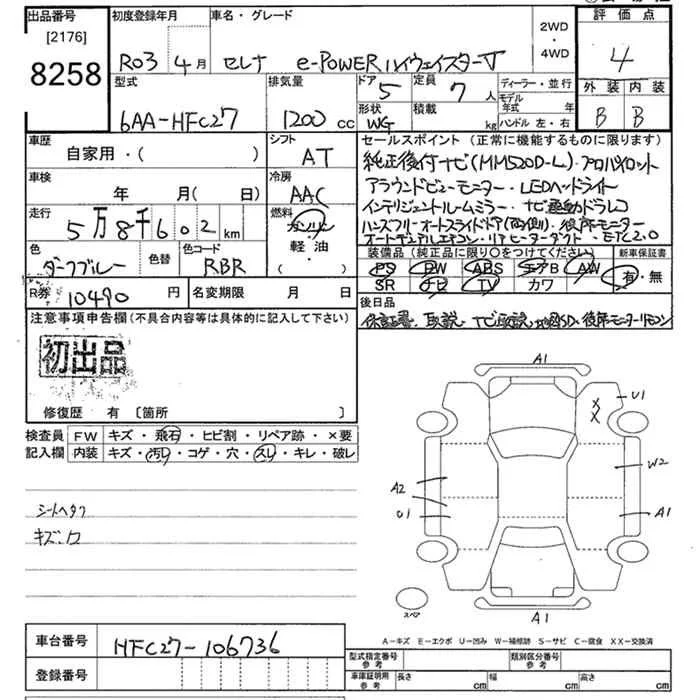 出品番号
[2176]
8258
初度登録年月
R03 4月
車名・グレード
セレナ e-POWER ハイウェイスターV
2WD
・
4WD
評価点
4
外装 内装
B B
型式
6AA-HFC27
排気量
1200 cc
ドア
5
定員
7人
形状
WG
積載
kg
ディーラー・並行
モデル年式 年
ハンドル 左・右
車歴
自家用・( )
シフト
AT
車検
年 月( )
冷房
AAC
走行
5万8千602km
燃料
ガソリン
軽油
・
( )
色
ダークブルー
色替
色コード
RBR
R券 10490円
名変期限 月 日
セールスポイント(正常に機能するものに限ります)
純正後付ナビ(MM520D-L)・プロパイロット
アラウンドビューモニター・LEDヘッドライト
インテリジェントルームミラー・ナビ連動ドラレコ
ハンズフリーオートスライドドア(両側)・後席モニター
オートデュアルエアコン・リアヒーターダクト・ETC2.0
装備品(純正品に限り○をつけてください)
PS PW ABS エアB AW
SR ナビ TV カワ
新車保証書
有・無
後日品
保証書、取説、ナビ取説、地図SD、後席モニターリモコン
注意事項申告欄(不具合内容等は具体的に記入して下さい)
初出品
修復歴 有 [箇所 ]
検査員
記入欄
FW キズ・飛石・ヒビ割・リペア跡・×要
内装 キズ・汚レ・コゲ・穴・スレ・キレ・破レ
シートヘタリ
キズ、穴
A1
U1
X
X
W2
A2
U1
A1
A1
スペア
A−キズ E−エクボ U−凹み W−補修跡 S−サビ C−腐食 XX−交換済
車台番号
HFC27-106736
登録番号
型式指定番号
参考
類別区分番号
参考
車庫証明用
参考
長さ cm
幅 cm
高さ cm